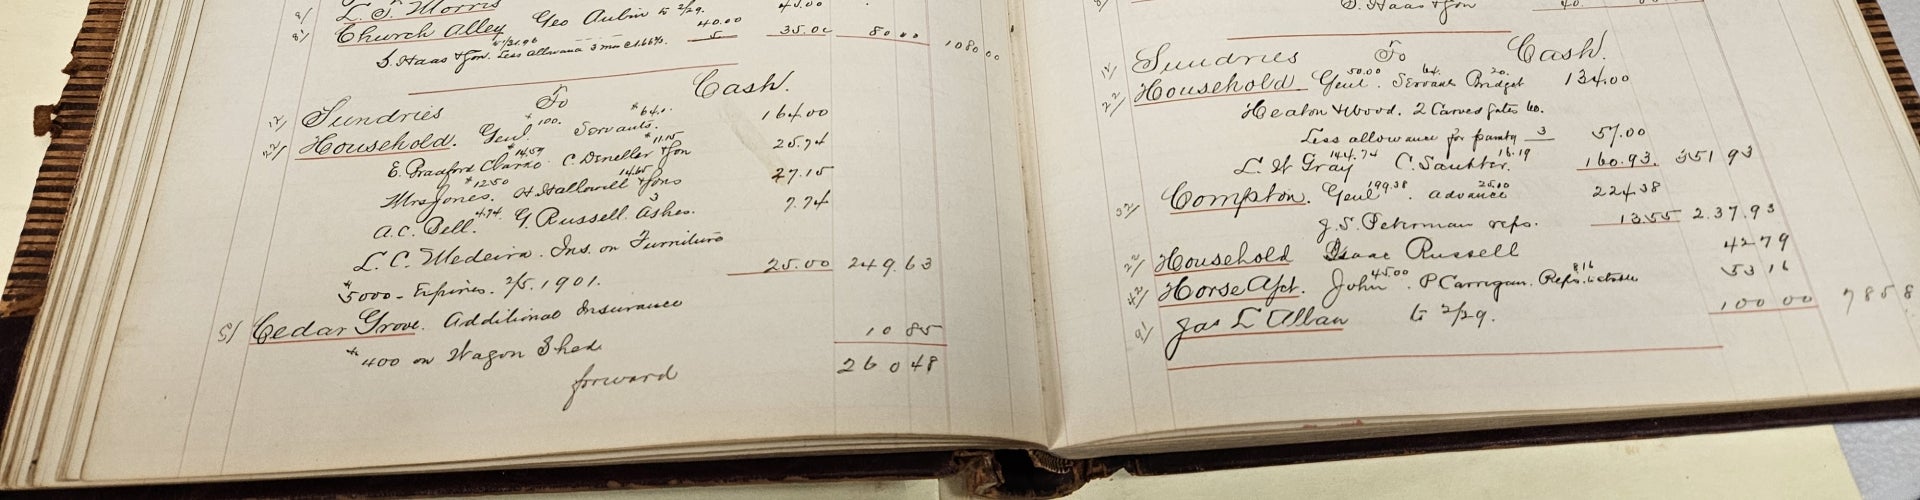 9/ L. T. Morris 45.00
8/ Church Alley Geo Aubin to 2/29. 40.00
S. Haas & Son. Less allwance 3 mos @ 1.66⅔. 5 35.00 80 00 1080 00
Sundries To Cash.
Household. Genl. $100. Servants. $64. 164.00
E. Bradford Clarke $14.59 C. Dineller & Son $11.15 25.74
Mrs Jones. $12.50 H. Hallowell & Sons 14.65 27.15
A.C. Bell. 4.74 G. Russell. Ashes. 3 7.74
L. C. Madeira. Ins. on Furniture
$5000 - Expires. 2/5. 1901. 25.00 249.63
5/ Cedar Grove. Additional Insurance
$400 on Wagon Shed 10 85
forward 260 48
S. Haas & Son 40.
Sundries To Cash.
Household Genl. 50.00 Servants 64. Bridget 20. 134.00
Heaton & Wood. 2 Carved Gates 60.
Less allowance for 3 57.00
L. W Gray 144.74 C. Sautter. 16.19 160.93. 351 93
Compton. Genl 199.38 advance 25.00 224.38
J. S. Peterman reps. 13.55 237.93
Household Isaac Russell 42 79
Horse Acct. John 45.00. P Carrigan. Reps. 8.16 53 16
9/ Jas L Allan to 2/29. 100 00 785 8